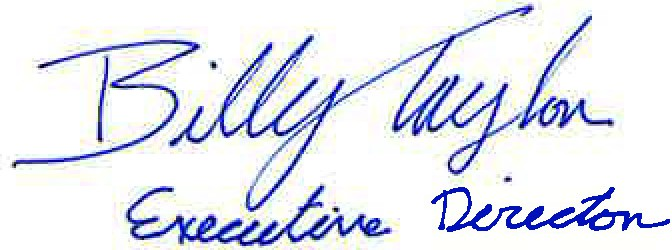 Billy Taylor
Executive Director